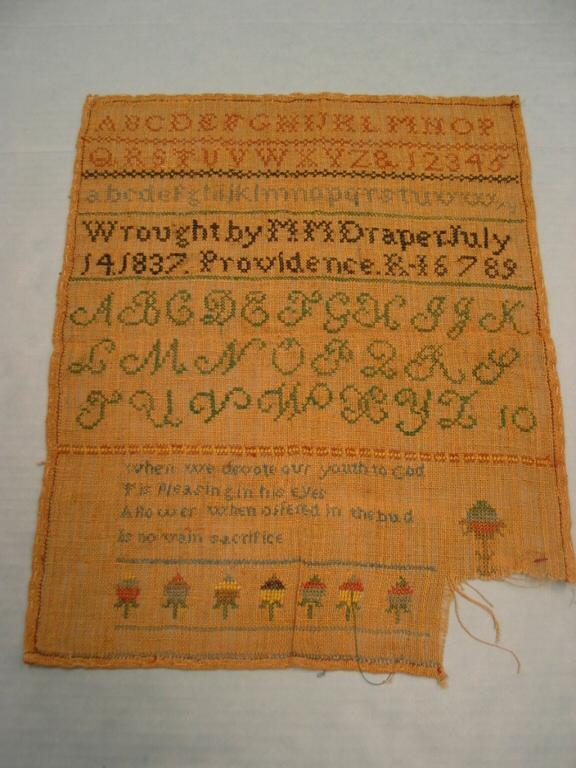 ABCDEFGHIJKLMNOP
QRSTUVWXYZ& 12345
abcdefghijklmnopqrstuvwxy
Wrought by M M Draper July
14.1837. Providence. R-I6789
ABCDEFGHIJK
LMNOPQRS
TUVWXYZ 10
When we devote our youth to God
T is Pleasing in his Eyes
A flower when offered in the bud
Is no vain sacrifice